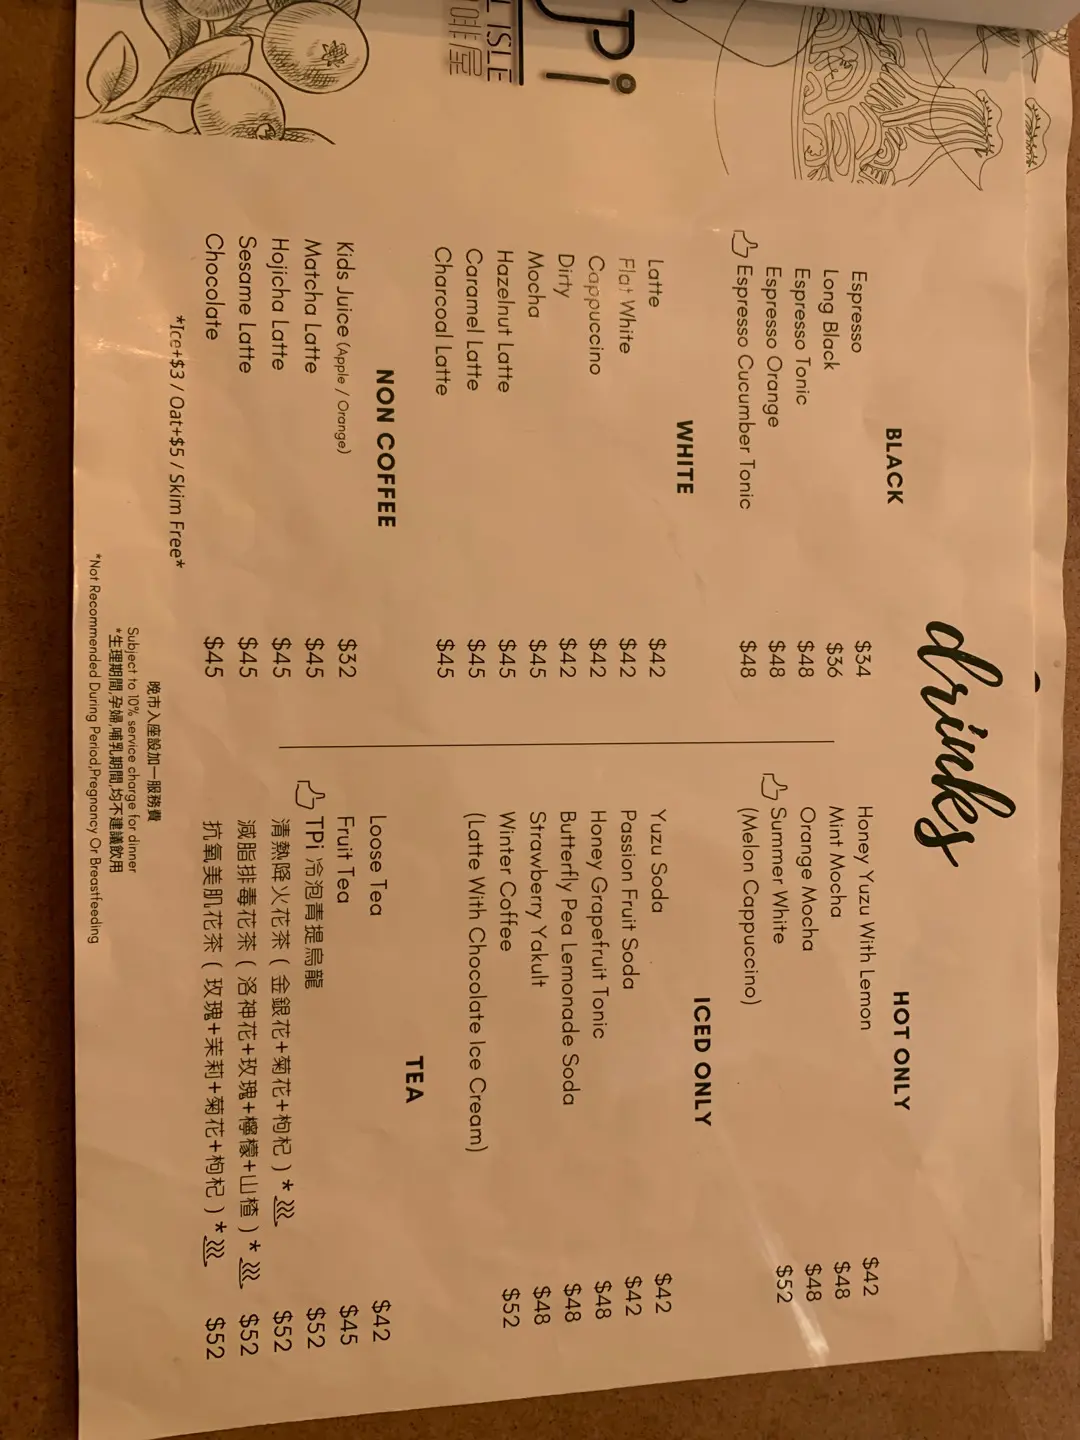 drinks
BLACK
Espresso $34
Long Black $36
Espresso Tonic $48
Espresso Orange $48
Espresso Cucumber Tonic $48
WHITE
Latte $42
Flat White $42
Cappuccino $42
Dirty $42
Mocha $45
Hazelnut Latte $45
Caramel Latte $45
Charcoal Latte $45
NON COFFEE
Kids Juice (Apple / Orange) $32
Matcha Latte $45
Hojicha Latte $45
Sesame Latte $45
Chocolate $45
*Ice+$3 / Oat+$5 / Skim Free*
HOT ONLY
Honey Yuzu With Lemon $42
Mint Mocha $48
Orange Mocha $48
Summer White $52
(Melon Cappuccino)
ICED ONLY
Yuzu Soda $42
Passion Fruit Soda $42
Honey Grapefruit Tonic $48
Butterfly Pea Lemonade Soda $48
Strawberry Yakult $48
Winter Coffee $52
(Latte With Chocolate Ice Cream)
TEA
Loose Tea $42
Fruit Tea $45
TPi 冷泡青提烏龍 $52
清熱降火花茶 ( 金銀花+菊花+枸杞 ) * $52
減脂排毒花茶 ( 洛神花+玫瑰+檸檬+山楂 ) * $52
抗氧美肌花茶 ( 玫瑰+茉莉+菊花+枸杞 ) * $52
晚市入座設加一服務費
Subject to 10% service charge for dinner
*生理期間,孕婦,哺乳期間,均不建議飲用
*Not Recommended During Period,Pregnancy Or Breastfeeding
Pi
ISLE
啡屋